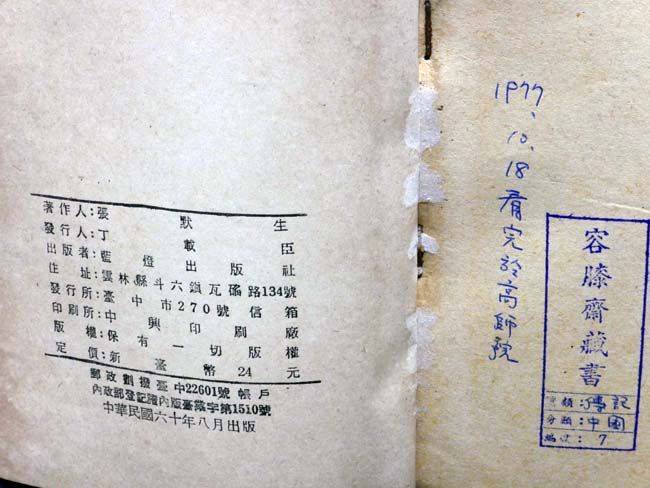 著作人:張默生
發行人:丁載臣
出版者:藍燈出版社
住址:雲林縣斗六鎮瓦磘路134號
發行所:臺中市270號信箱
印刷所:中興印刷廠
版權:保有一切版權
定價:新臺幣24元
郵政劃撥臺中22601號帳戶
內政部登記證內版臺業字第1510號
中華民國六十年八月出版
1977、10、18看完於高師院
容膝齋藏書
類:傳記
分類:中國
編次:7